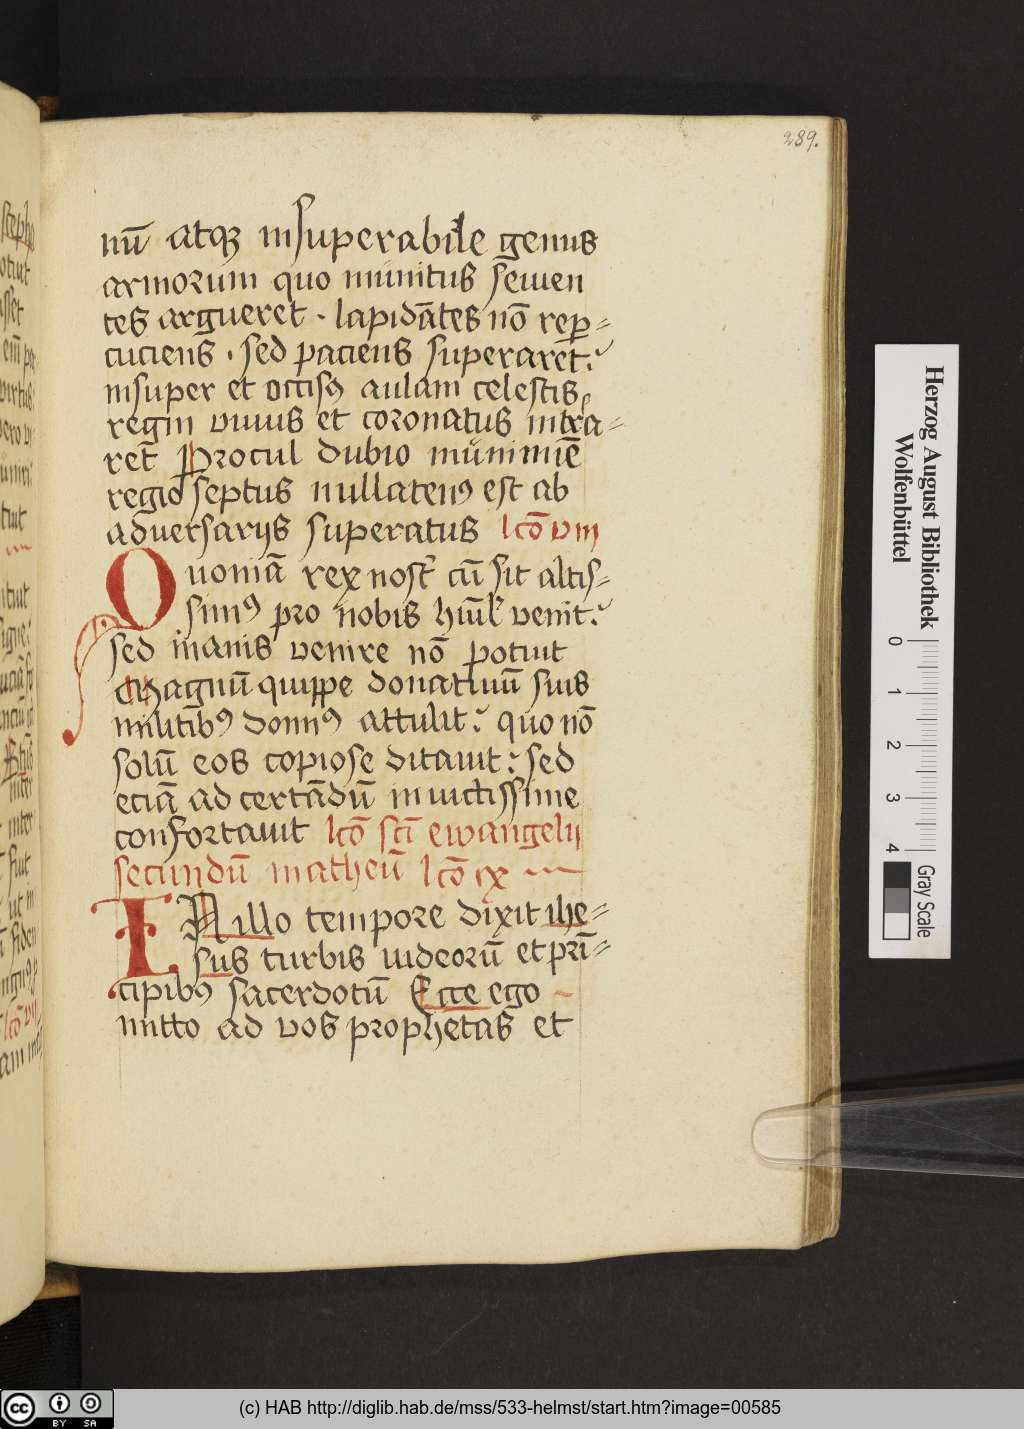 289.
nū atqꝫ insuperabile genus
armorum quo munitus seuien
tes argueret · lapidātes nō reꝑ⸗
cuciens · sed paciens superaret:
insuper et occisꝰ aulam celestis
regni viuus et coronatus intra⸗
ret̄ Procul dubio munimiē
regio septus nullatenꝰ est ab
aduersarijs superatus lcō viii
Quoniā rex nost̄ cū sit altis⸗
simꝰ pro nobis hūīl̄ venit:
sed inanis venire nō potuit
Magnū quippe donatiuū suis
militibꝰ domnꝰ attulit: quo nō
solū eos copiose ditauit: sed
eciā ad certādū inuictissime
confortauit lcō scī ewangelij
secundū matheū lcō ix
IN illo tempore dixit ihe⸗
sus turbis iudeorū et pri̅⸗
cipibꝰ sacerdotū Ecce ego
mitto ad vos prophetas et
Herzog August Bibliothek
Wolfenbüttel
0 1 2 3 4
Gray Scale
(c) HAB http://diglib.hab.de/mss/533-helmst/start.htm?image=00585
cc BY SA